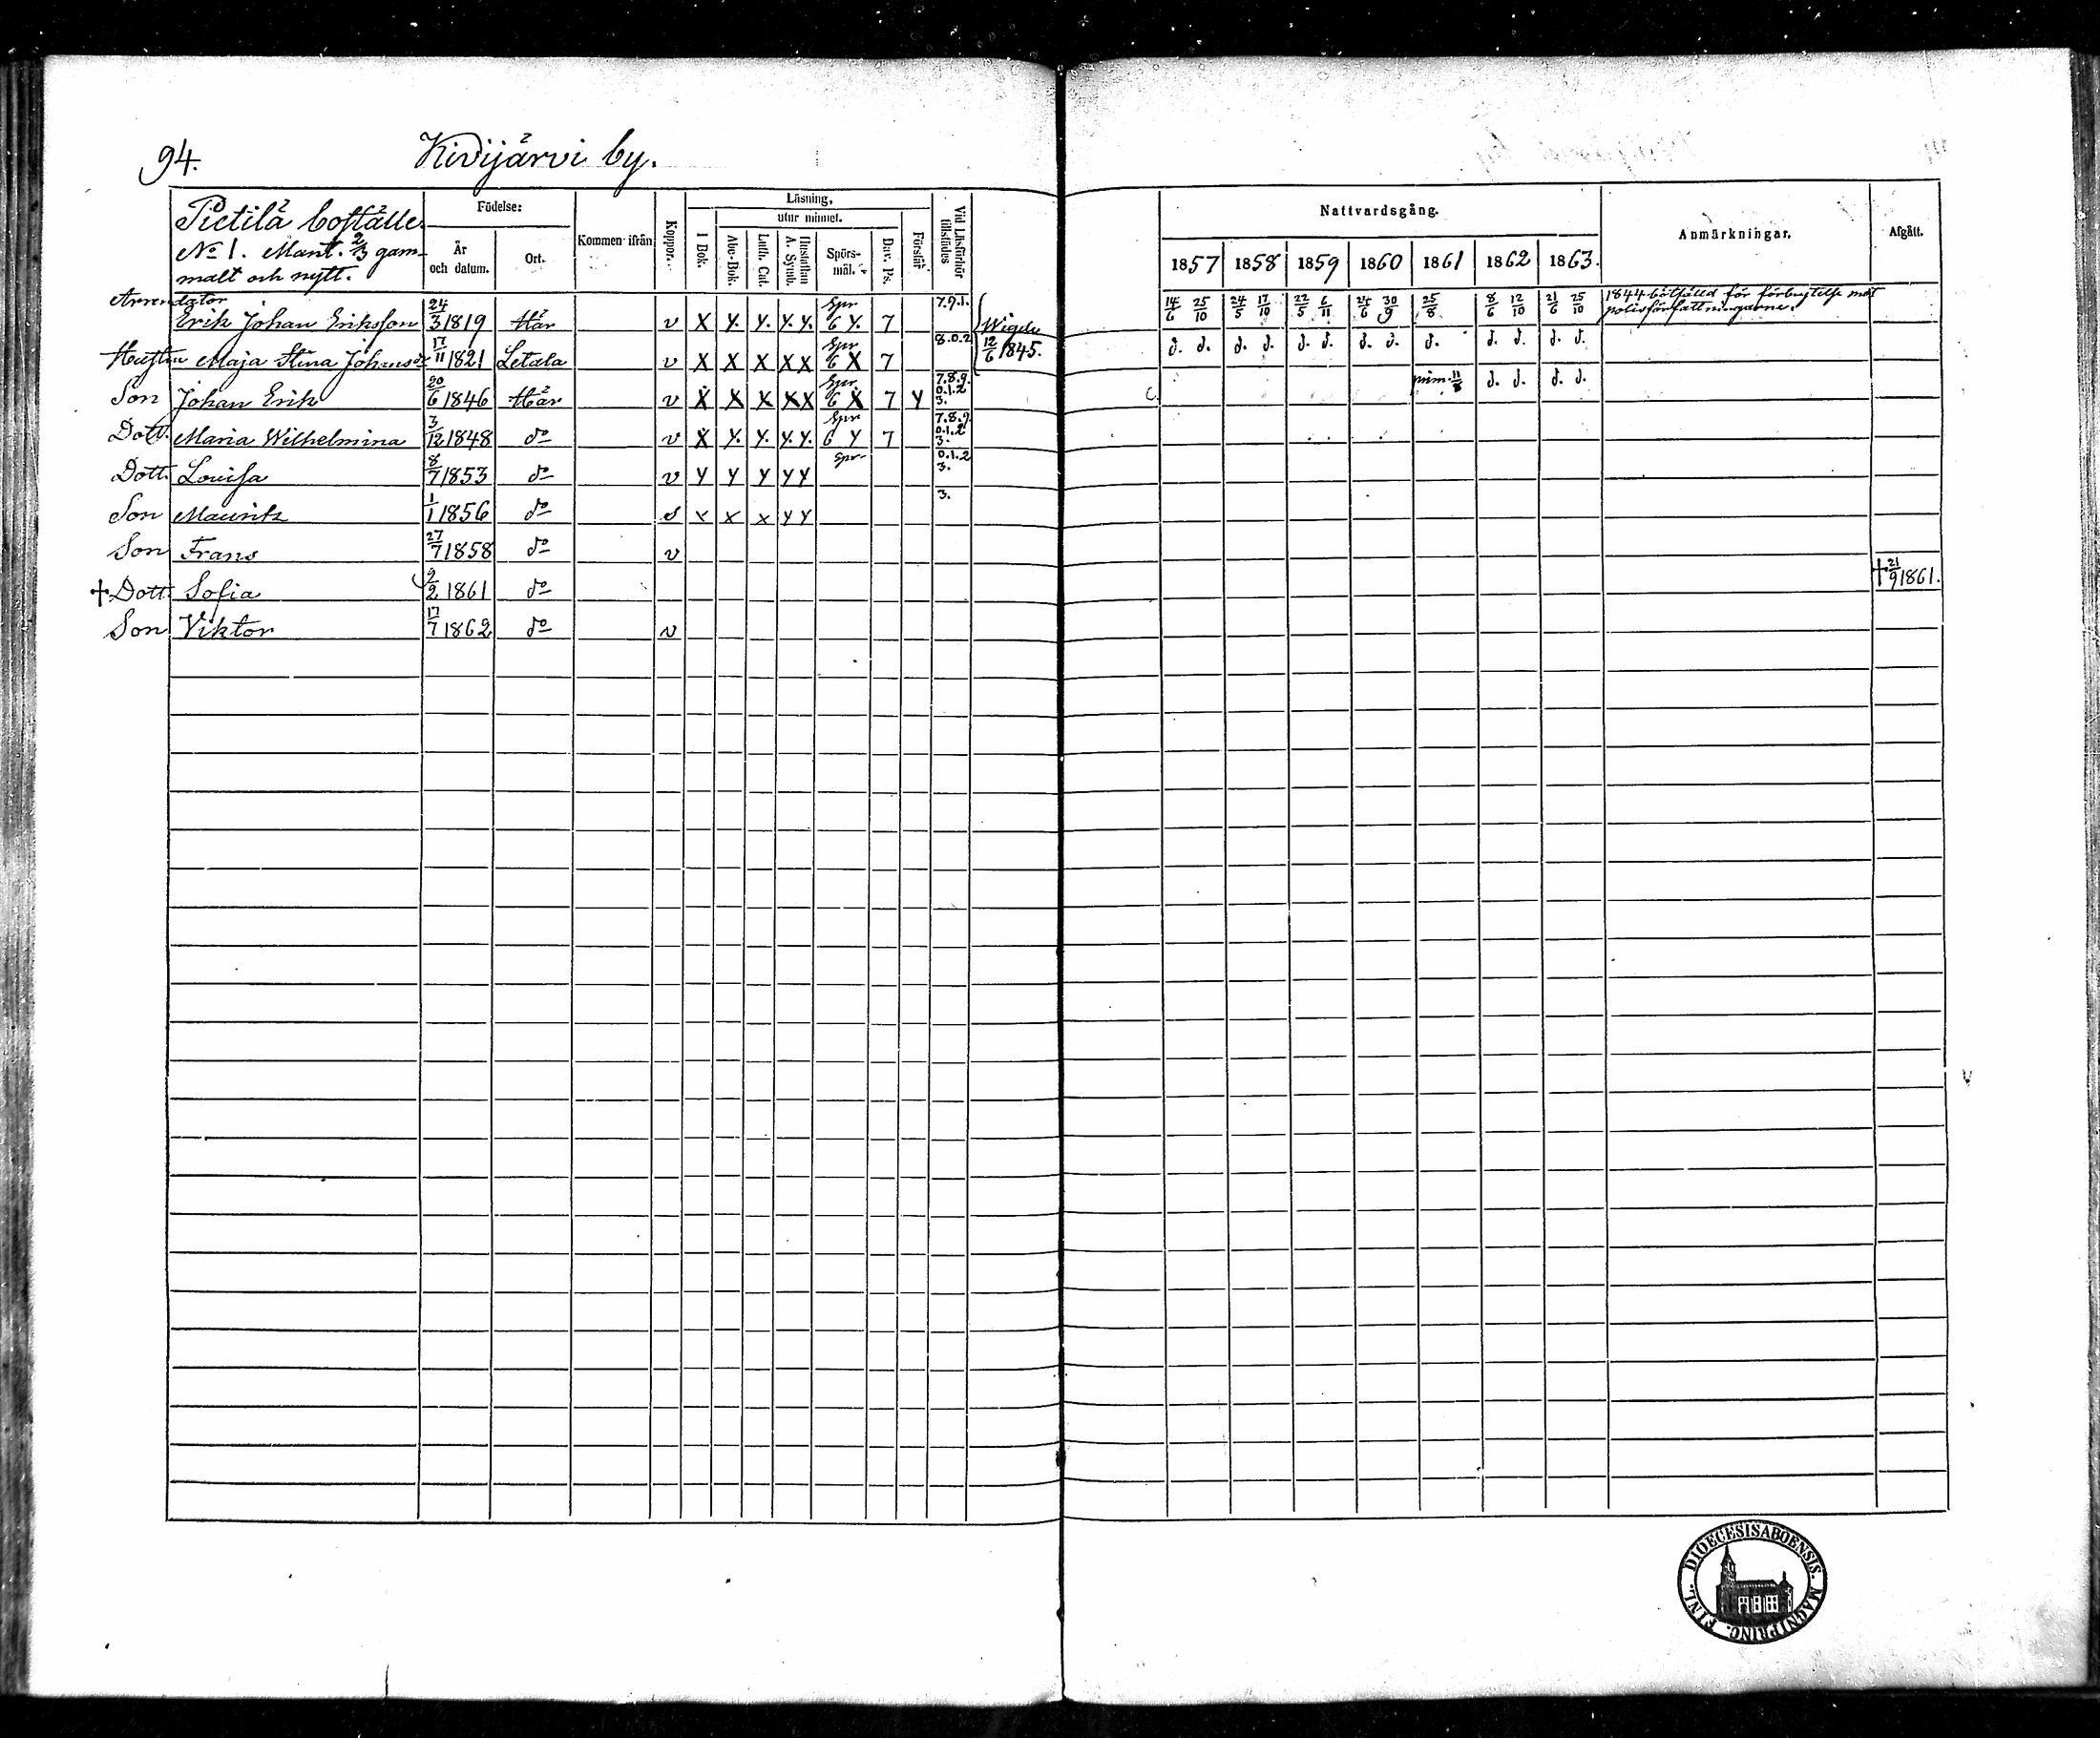 94.
Kivijärvi by.
Pietilä boställe
No 1. Mant. 2/3 gam-
malt och nytt.
Födelse:
År
och datum.
Ort.
Kommen ifrån
Koppor.
Läsning,
utur minnet.
I Bok.
Abc-Bok.
Luth. Cat.
Hustaflan
A. Symb.
Spörs-
mål.
Dav. Ps.
Förstår
Vid Läsförhör
tillstädes
Nattvardsgång.
1857 1858 1859 1860 1861 1862 1863.
Anmärkningar.
Afgått.
Arrendator
Erik Johan Eriksson 24/3 1819 Här v X Y. Y. Y. Y. Spr 6 Y. 7 7.9.1. 14/6 25/10 24/5 17/10 22/5 6/11 30/9 25/8 8/6 12/10 21/6 25/10
1844 bötfälld för förbrytelse mot
polisförfattningarne.
Hustru Maja Stina Johansdr 17/11 1821 Letala v X X X X X Spr 6 X 7 8.0.2 d. d. d. d. d. d. d. d. d. d. d. d. d.
Wigde
12/6 1845.
Son Johan Erik 20/6 1846 Här v X X X X X Spr 6 X 7 Y 7.8.9. 0.1.2 3. 11/8 d. d. d. d.
Dott. Maria Wilhelmina 3/12 1848 do v X Y. Y. Y. Y. Spr 6 Y 7 7.8.9. 0.1.2 3.
Dott. Lovisa 8/7 1853 do v Y Y Y Y Y Spr 0.1.2 3.
Son Mauritz 1/1 1856 do x x x Y Y 3.
Son Frans 27/7 1858 do v
† Dott. Sofia 9/2 1861 do † 21/9 1861.
Son Viktor 17/7 1862 do v
DIOECESIS ABOENSIS. MAGNI PRINC. FINL.